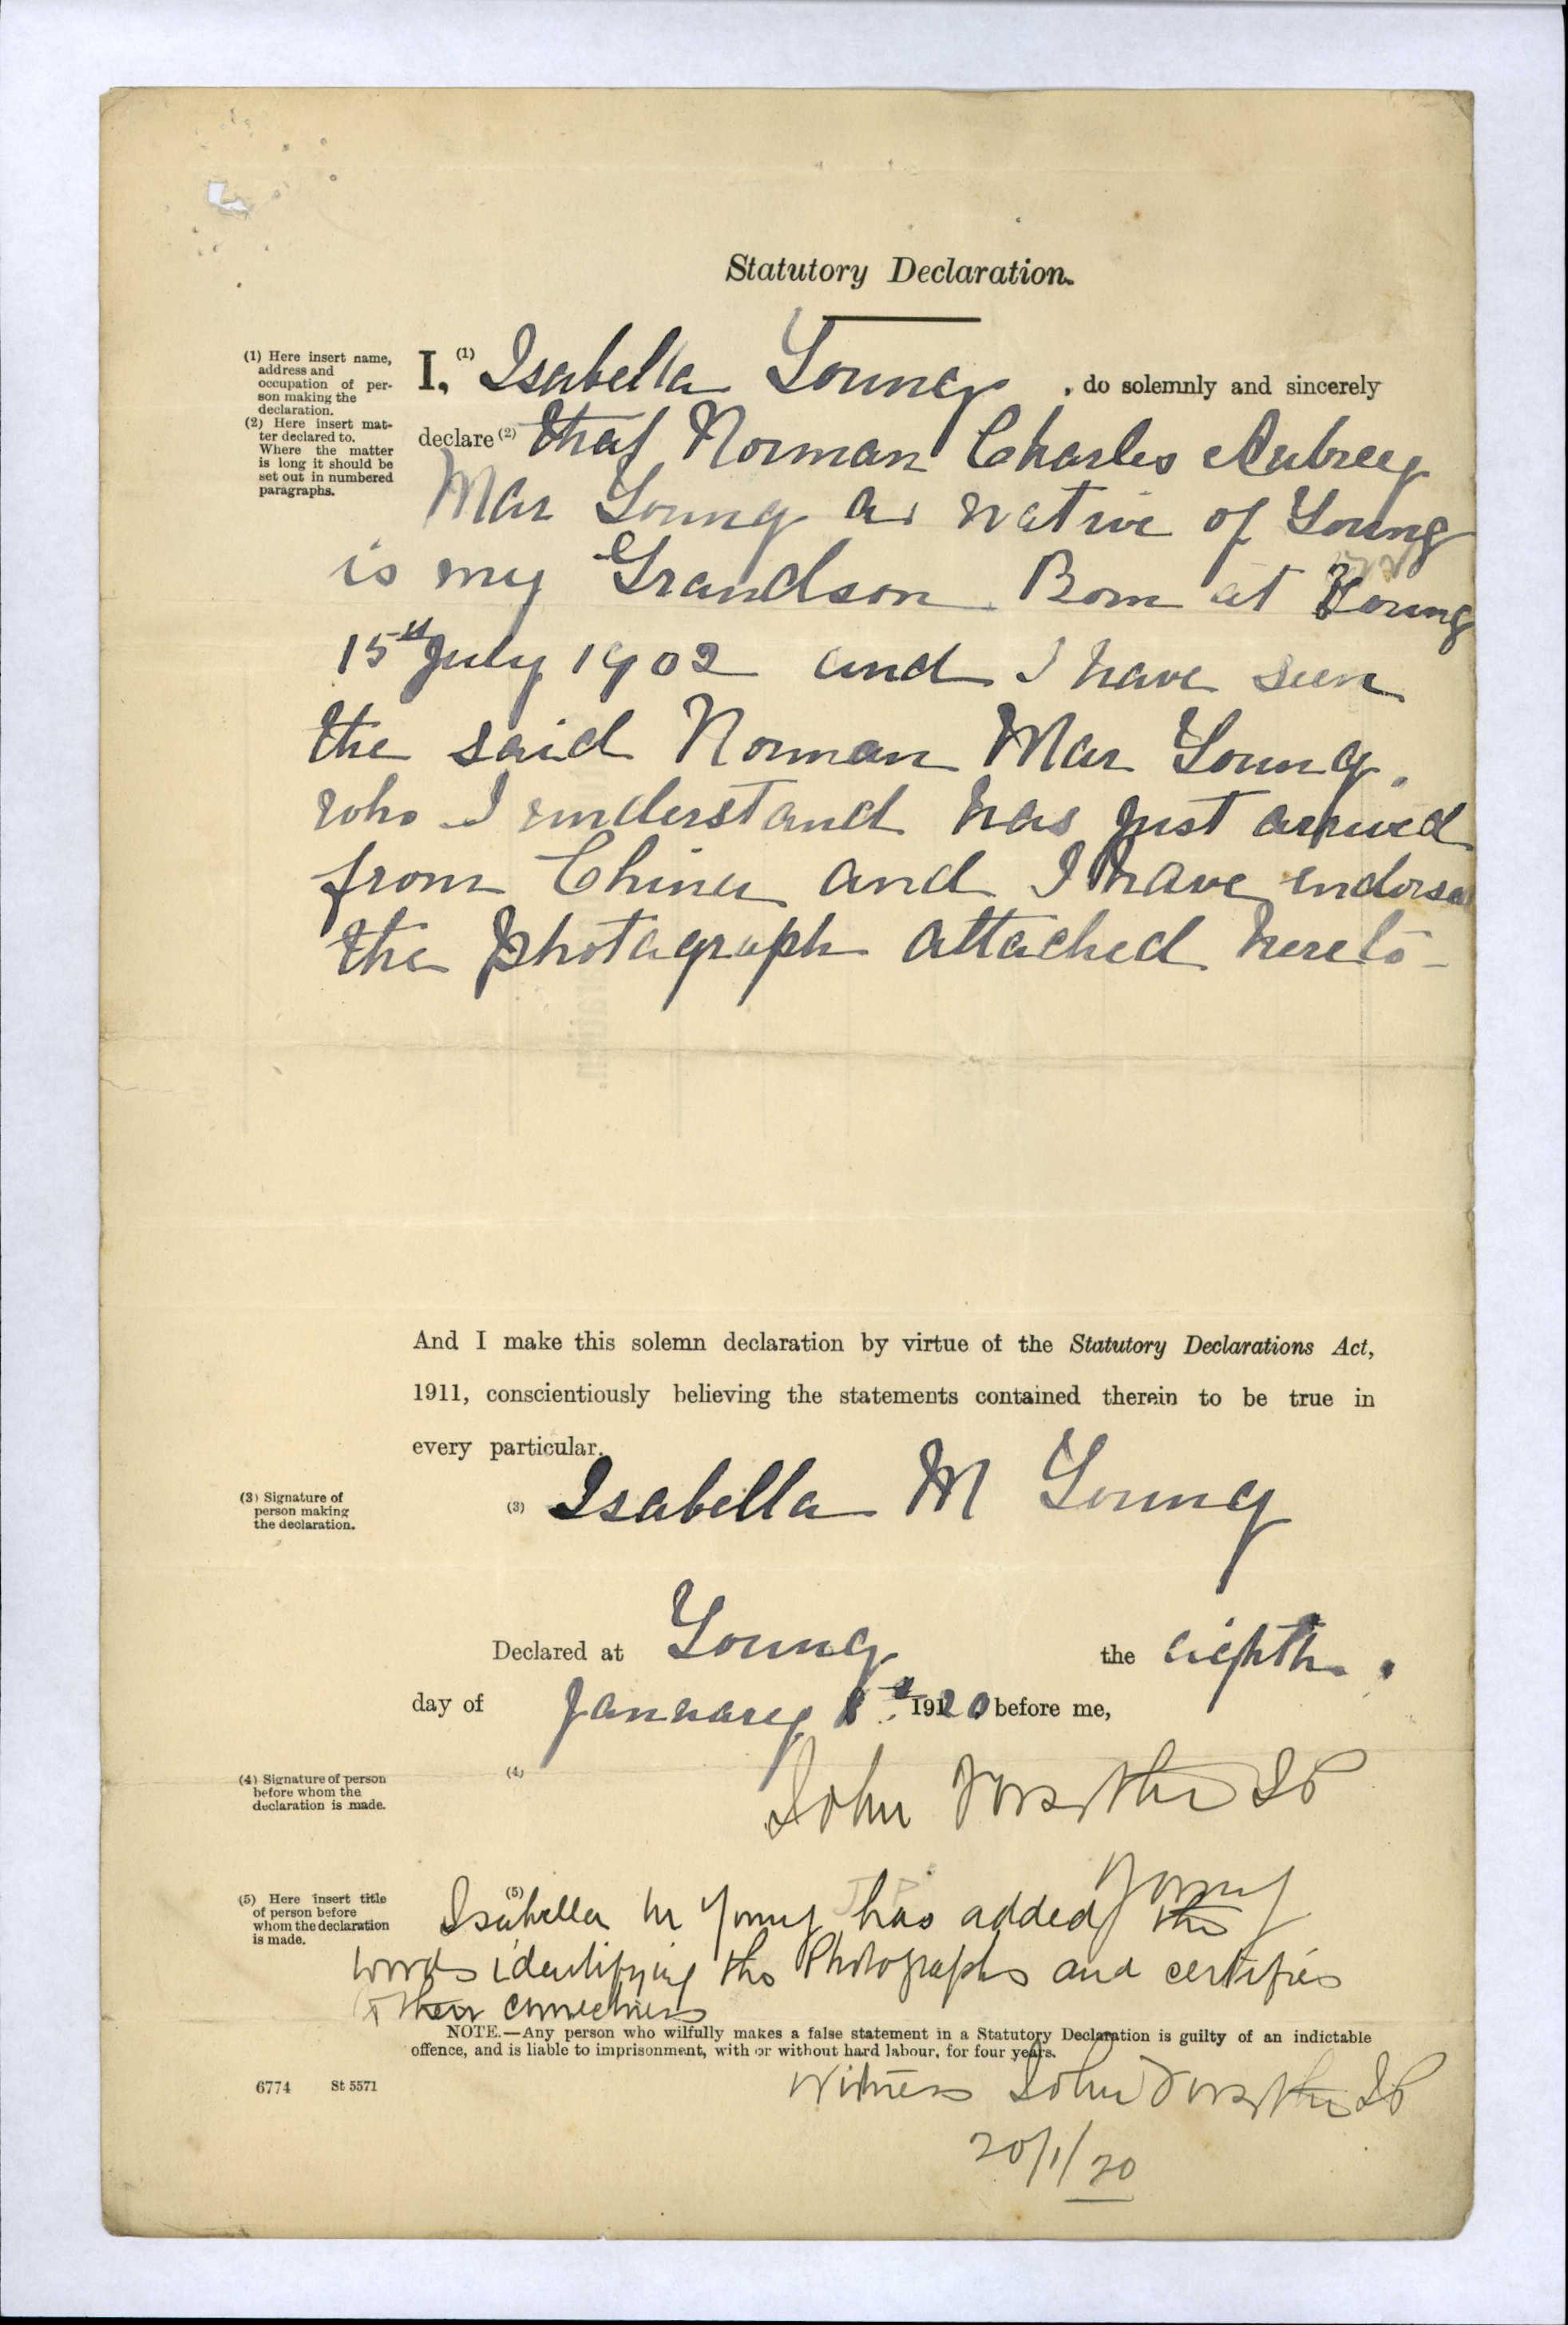 Statutory Declaration.
(1) Here insert name,
address and
occupation of per-
son making the
declaration.
(2) Here insert mat-
ter declared to.
Where the matter
is long it should be
set out in numbered
paragraphs.
I, (1) Isabella Young , do solemnly and sincerely
declare (2) that Norman Charles Aubrey
Mar Young a native of Young
is my Grandson Born at Young
15th July 1902 and I have seen
the said Norman Mar Young.
who I understand has just arrived
from China and I have endorsed
the photagraph attached hereto -
And I make this solemn declaration by virtue of the Statutory Declarations Act,
1911, conscientiously believing the statements contained therein to be true in
every particular.
(3) Signature of
person making
the declaration.
(3) Isabella M Young
Declared at Young the eighth.
day of January 8th 1920 before me,
(4) Signature of person
before whom the
declaration is made.
(4)
John Forsythe JP
(5) Here insert title
of person before
whom the declaration
is made.
(5)
JP
Young
Isabella M Young has added the
words identifying the Photographs and certifies
their correctness
NOTE.—Any person who wilfully makes a false statement in a Statutory Declaration is guilty of an indictable
offence, and is liable to imprisonment, with or without hard labour, for four years.
6774 St 5571
Witness John Forsythe JP
20/1/20